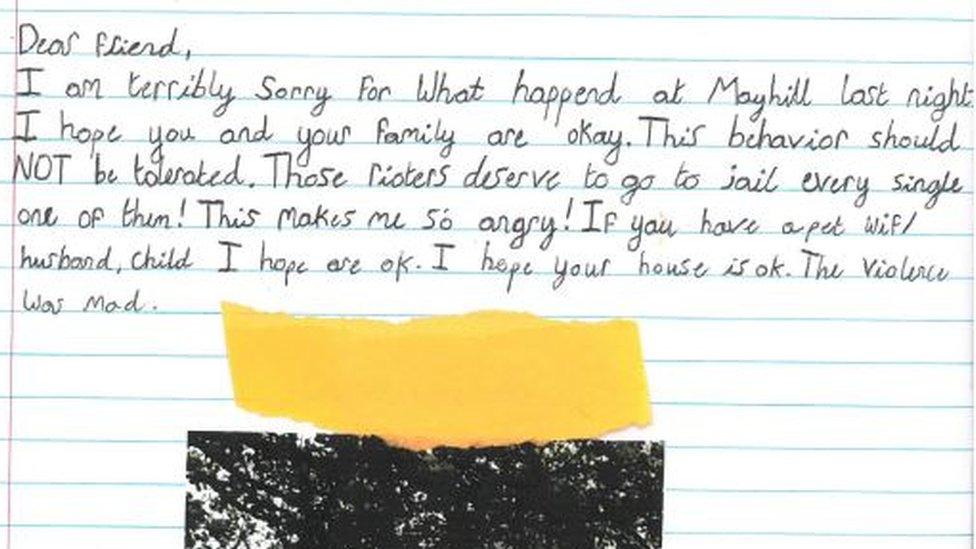 Dear friend,
I am terribly Sorry For What happend at Mayhill last night
I hope you and your family are okay. This behavior should
NOT be tolerated. Those rioters deserve to go to jail every single
one of them! This makes me so angry! If you have a pet wif/
husband, child I hope are ok. I hope your house is ok. The violence
was mad.